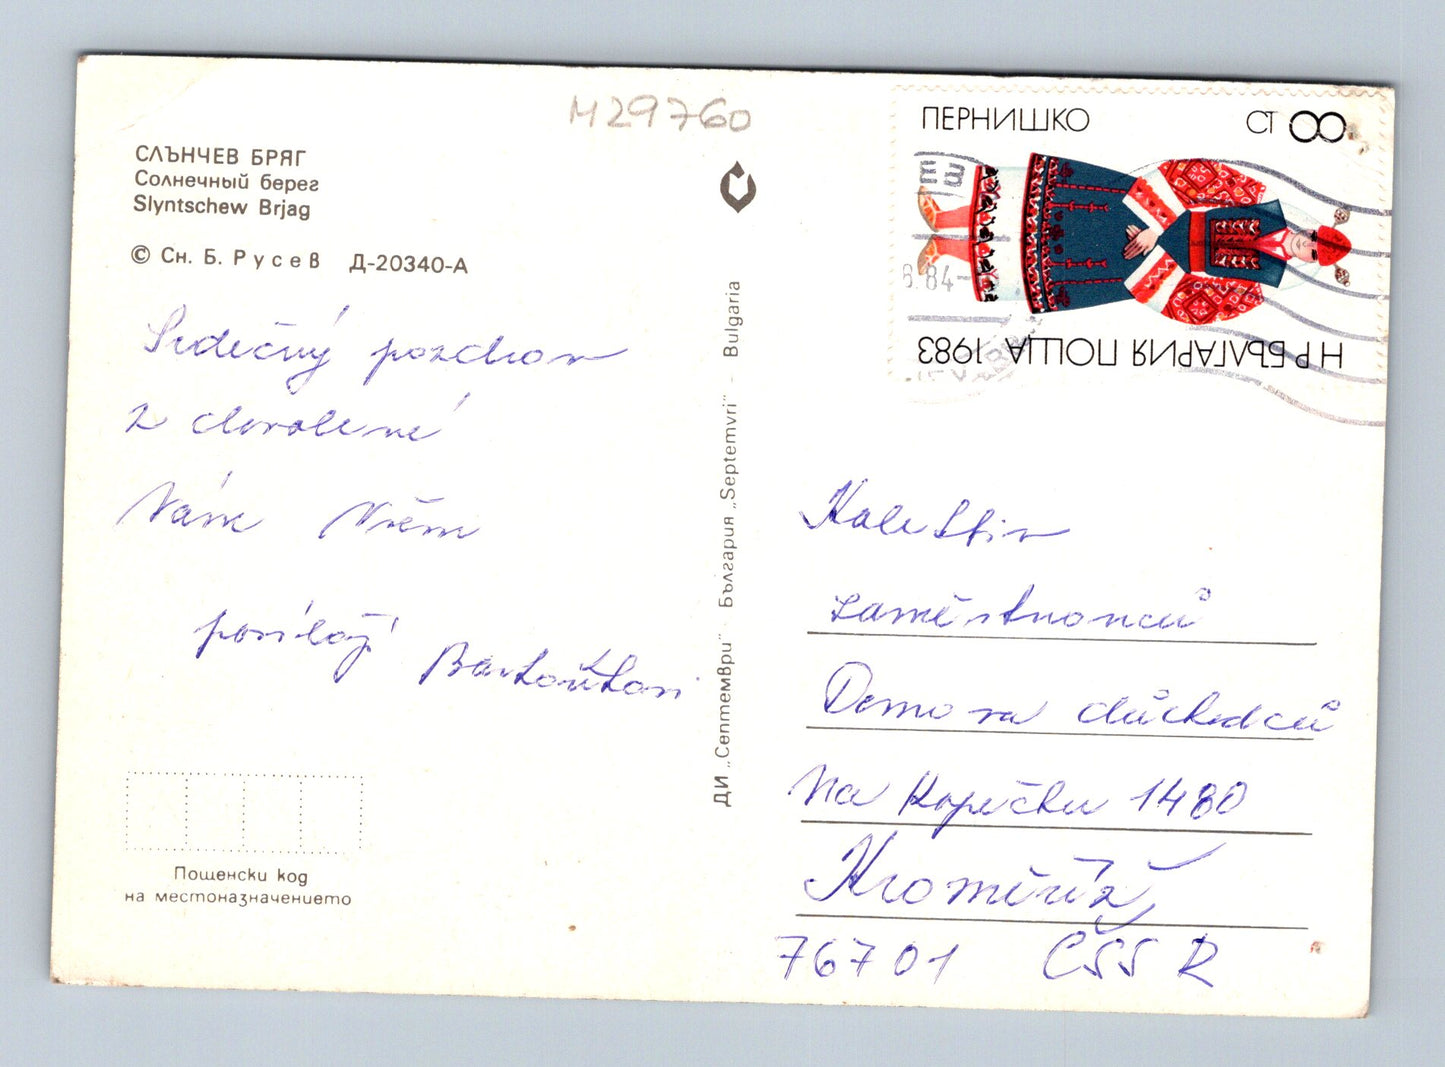 M29760
СЛЪНЧЕВ БРЯГ
Солнечный берег
Slyntschew Brjag
© Сн. Б. Русев Д-20340-А
Srdečný pozdrav
z dovolené
Vám Všem
posílají Bartoškovi
Пощенски код
на местоназначението
ДИ „Септември“ · България „Septemvri“ · Bulgaria
ПЕРНИШКО
СТ 8
НР БЪЛГАРИЯ ПОЩА 1983
8.84-
Kolektiv
zaměstnanců
Domova důchodců
Na Kopečku 1480
Kroměříž,
76701 ČSSR